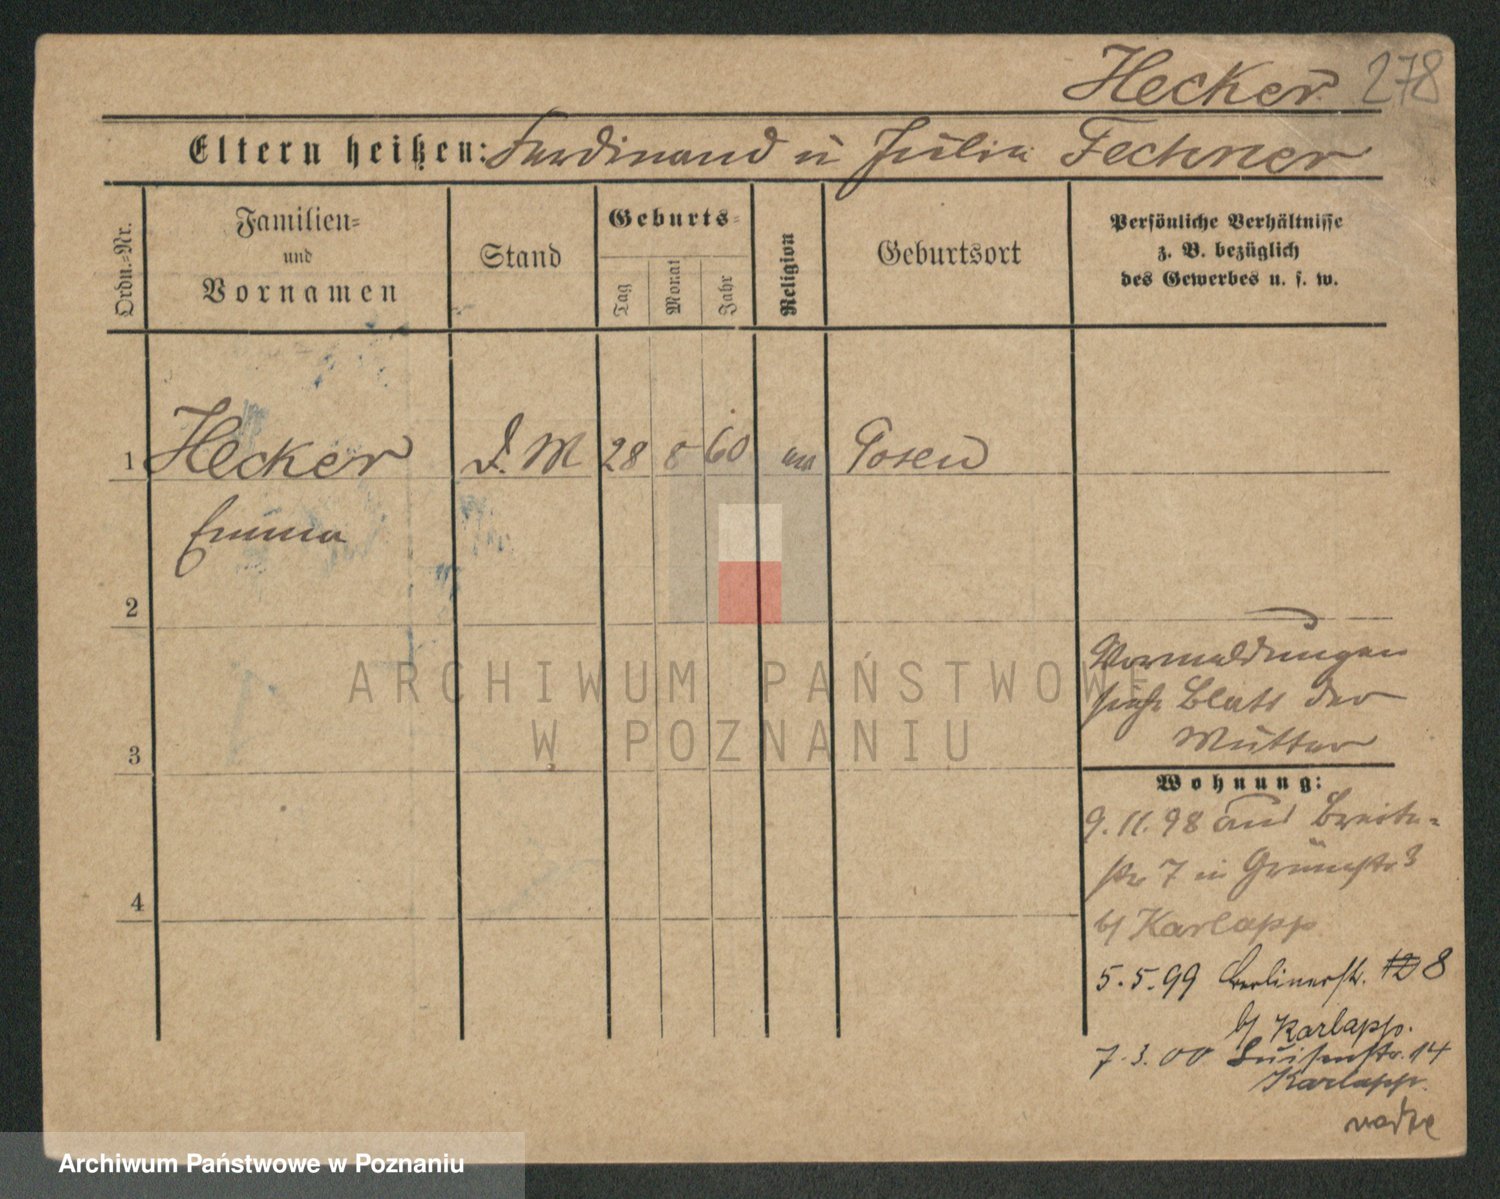 Hecker 278
Eltern heißen: Ferdinand u Julia Fechner
Ordn.-Nr.
Familien-
und
Vornamen
Stand
Geburts-
Tag
Monat
Jahr
Religion
Geburtsort
Persönliche Verhältnisse
z. B. bezüglich
des Gewerbes u. s. w.
1 Hecker D. M 28 8 60 Posen
Emma
2
3
4
Vormeldungen
siehe Blatt der
Mutter
Wohnung:
9. 11. 98 aus Breite-
str 7 in Grünstr 3
b/ Karlapp
5. 5. 99 Berlinerstr. 8
b/ Karlapp.
7. 3. 00 Luisenstr. 14
Karlapp.
ARCHIWUM PAŃSTWOWE
W POZNANIU
Archiwum Państwowe w Poznaniu